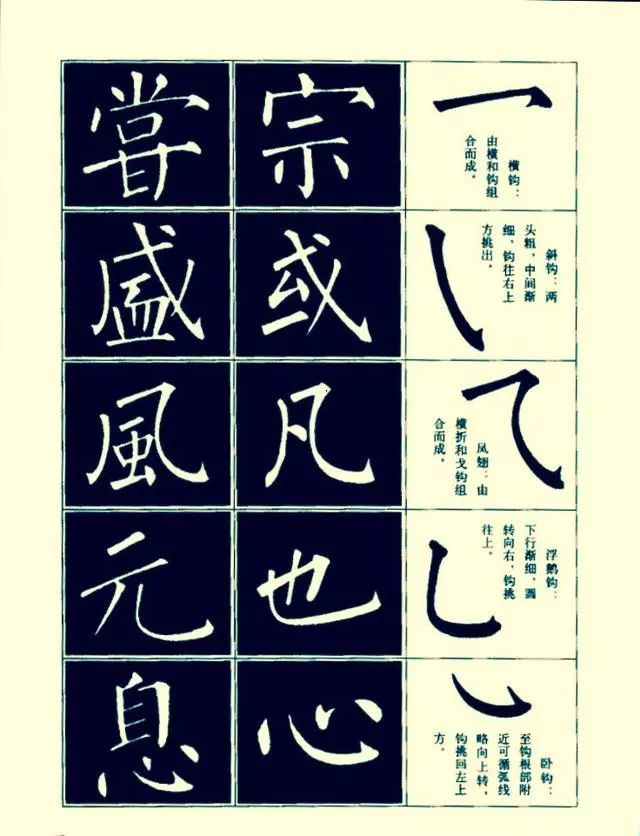 横钩：
由横和钩组
合而成。
宗
嘗
斜钩：两
头粗，中间渐
细，钩往右上
方挑出。
或
盛
凤翅：由
横折和戈钩组
合而成。
凡
風
浮鹅钩：
下行渐细、圆
转向右，钩挑
往上。
也
元
卧钩：
至钩根部附
近可循弧线
略向上转，
钩挑回左上
方。
心
息